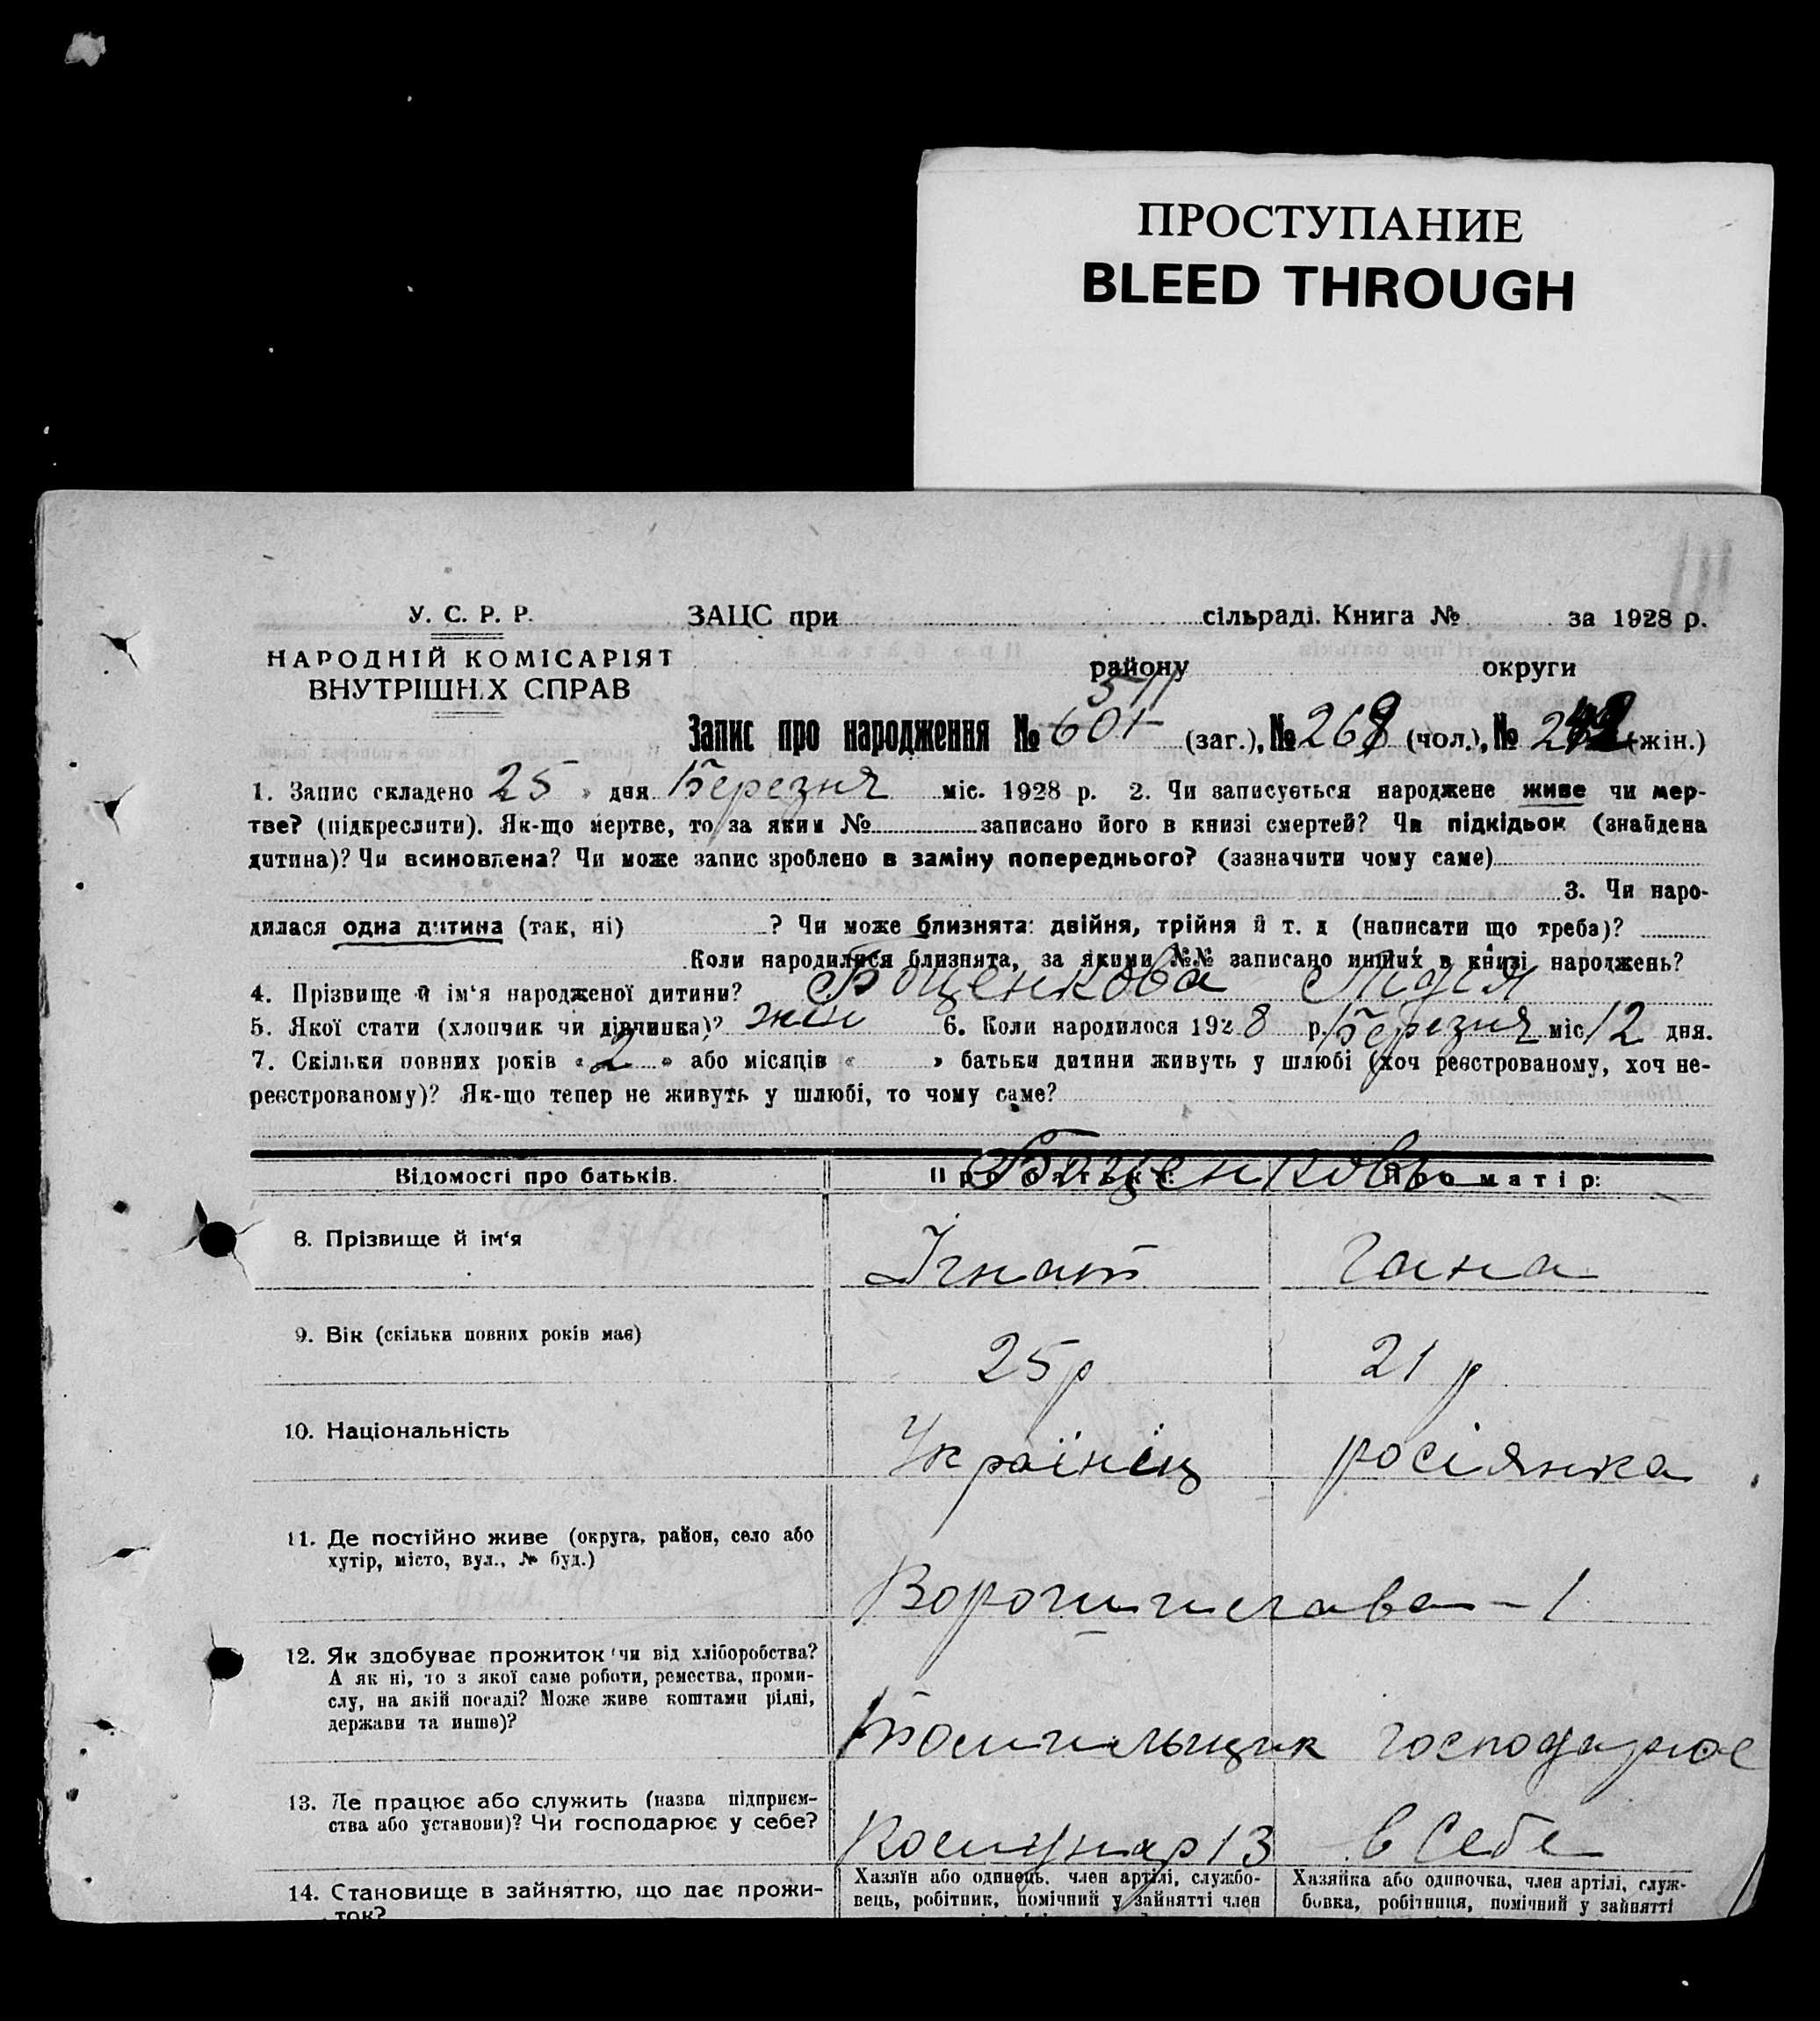 ПРОСТУПАНИЕ
BLEED THROUGH
У. С. Р. Р.
НАРОДНІЙ КОМІСАРІЯТ
ВНУТРІШНІХ СПРАВ
ЗАЦС при сільраді. Книга № за 1928 р.
району округи
511
Запис про народження № 601 (заг.), № 268 (чол.), № (жін.)
1. Запис складено 25 » дня Березня міс. 1928 р. 2. Чи записується народжене живе чи мер-
тве? (підкреслити). Як-що мертве, то за яким № записано його в книзі смертей? Чи підкідьок (знайдена
дитина)? Чи всиновлена? Чи може запис зроблено в заміну попереднього? (зазначити чому саме)
3. Чи наро-
дилася одна дитина (так, ні) ? Чи може близнята: двійня, трійня й т. д (написати що треба)?
Коли народилися близнята, за якими №№ записано инших в книзі народжень?
4. Прізвище й ім‘я народженої дитини? Боценкова Лідія
5. Якої стати (хлопчик чи дівчинка)? жін 6. Коли народилося 1928 р. Березня міс 12 дня.
7. Скільки повних років « 2 » або місяців « » батьки дитини живуть у шлюбі (хоч реєстрованому, хоч не-
реєстрованому)? Як-що тепер не живуть у шлюбі, то чому саме?
Відомості про батьків. Про батька: Про матір:
Боценкови
8. Прізвище й ім‘я Ігнат Гана
9. Вік (скільки повних років має) 25 р 21 р
10. Національність Українець росіянка
11. Де постійно живе (округа, район, село або
хутір, місто, вул., № буд.)
– 1
12. Як здобуває прожиток (чи від хліборобства?
А як ні, то з якої саме роботи, ремества, проми-
слу, на якій посаді? Може живе коштами рідні,
держави та инше)?
господарює
13. Де працює або служить (назва підприєм-
ства або установи)? Чи господарює у себе?
Комунар 13 в Себе
14. Становище в зайняттю, що дає прожи-
ток?
Хазяїн або одинець, член артілі, службо-
вець, робітник, помічний у зайнятті член
Хазяйка або одиночка, член артілі, служ-
бовка, робітниця, помічний у зайнятті